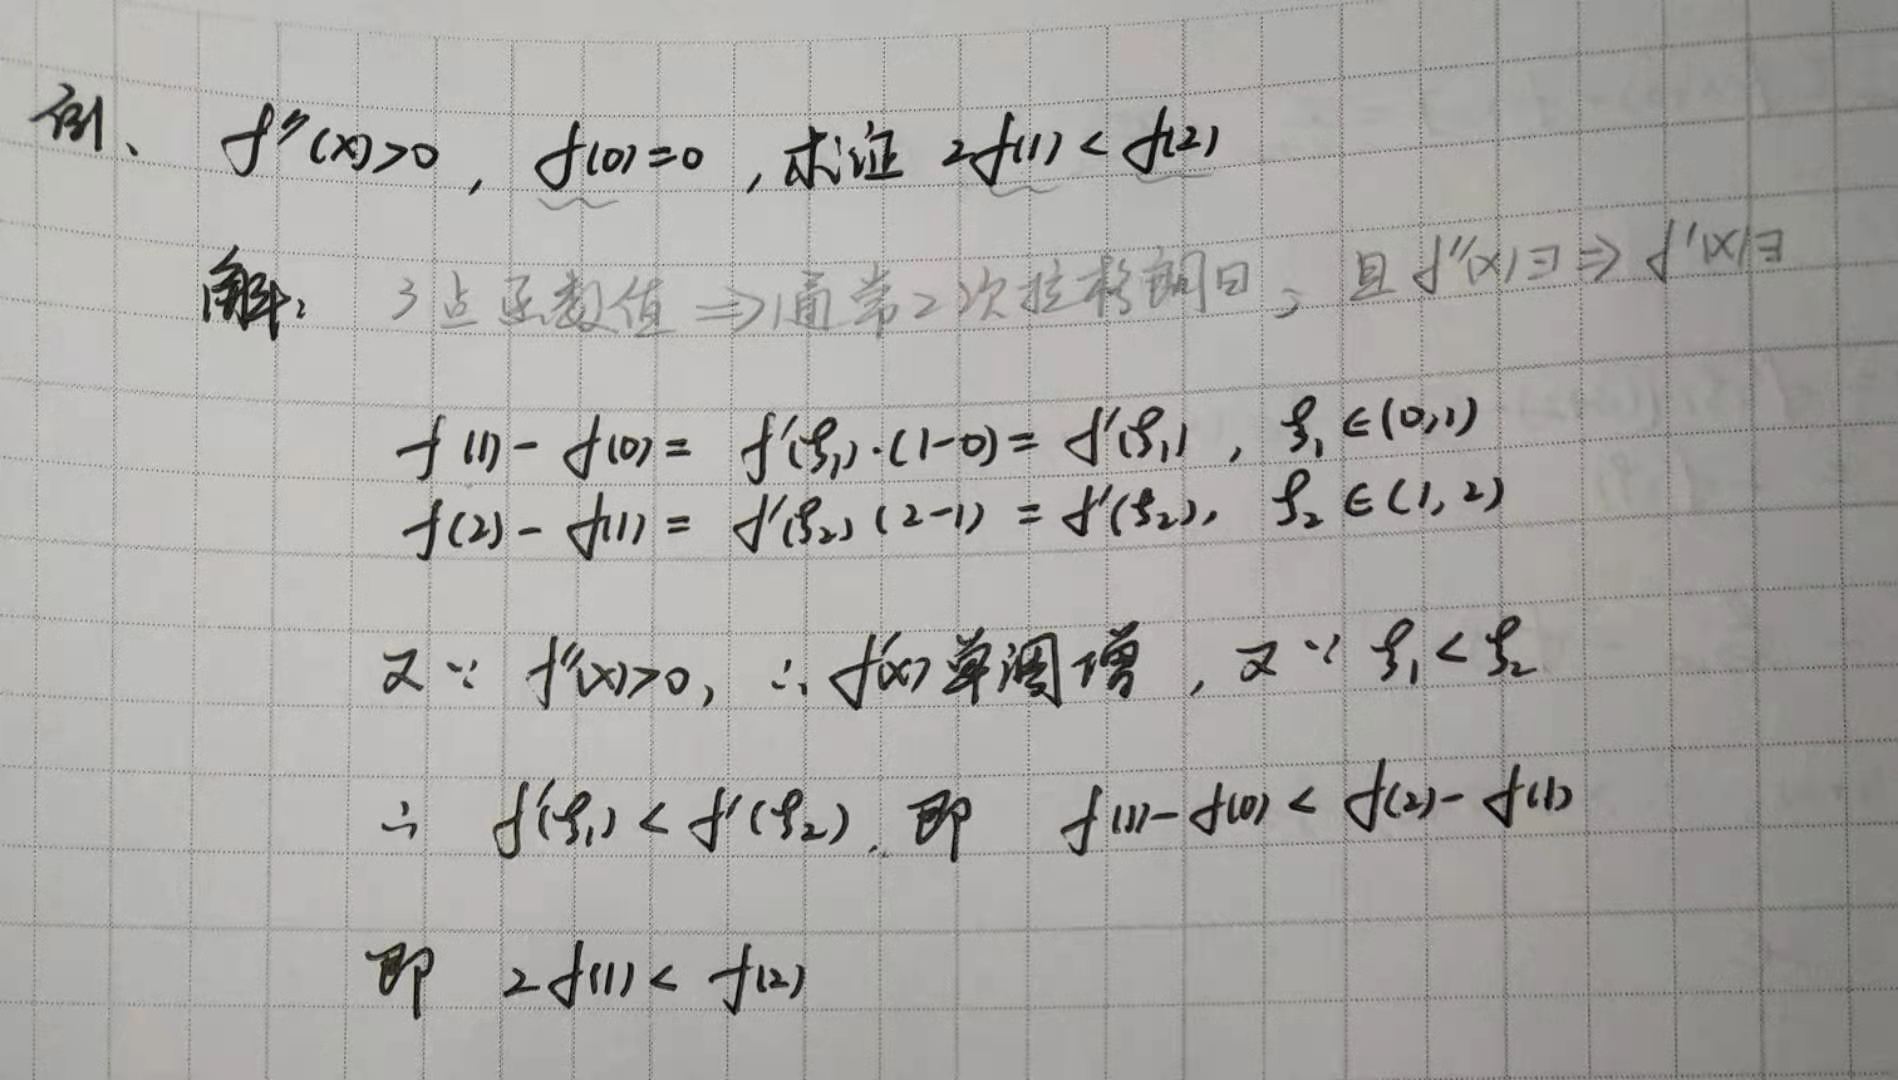 例、 f''(x)>0, f(0)=0, 求证 2f(1)<f(2)
解: 3点函数值 ⇒ 通常2次拉格朗日, 且f''(x)∃ ⇒ f'(x)∃
f(1)-f(0)= f'(ξ₁)·(1-0)= f'(ξ₁), ξ₁∈(0,1)
f(2)-f(1)= f'(ξ₂)(2-1)= f'(ξ₂), ξ₂∈(1,2)
又∵ f''(x)>0, ∴ f'(x)单调增, 又∵ ξ₁<ξ₂
∴ f'(ξ₁)<f'(ξ₂), 即 f(1)-f(0)<f(2)-f(1)
即 2f(1)<f(2)